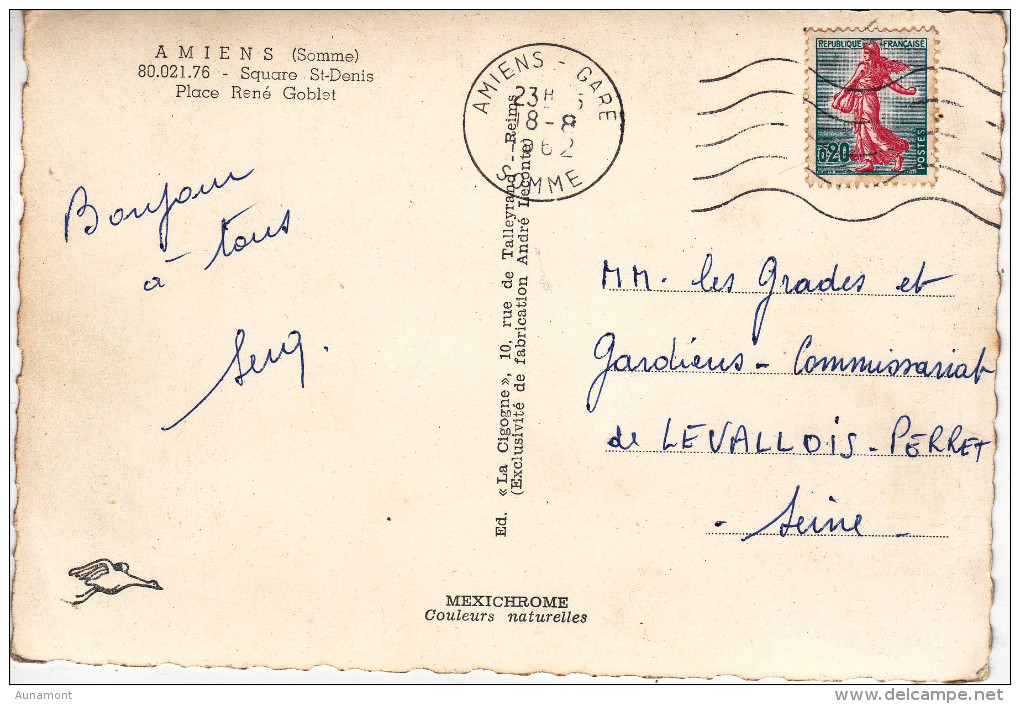 A M I E N S (Somme)
80.021.76 - Square St-Denis
Place René Goblet
AMIENS - GARE
23H
8 - 8
1962
SOMME
REPUBLIQUE FRANÇAISE
0,20
POSTES
Bonjour
à tous
Serg.
Ed. « La Cigogne », 10, rue de Talleyrand - Reims
(Exclusivité de fabrication André Leconte)
MM. les Gradés et
Gardiens - Commissariat
de LEVALLOIS-PERRET
- Seine -
MEXICHROME
Couleurs naturelles
Aunamont
delcampe.net